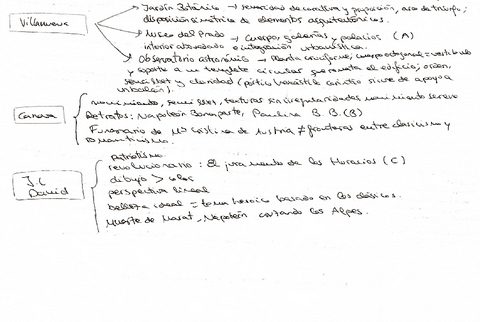 Villanueva
Jardín Botánico → sencillez y proporción, arco de triunfo,
disposición simétrica de elementos arquitectónicos.
Museo del Prado → cuerpo, galerías y palacios (A)
interior abovedado e integración urbanística.
Observatorio astronómico → planta cruciforme; cuerpo octogonal = vestíbulo
y soporte a un templete circular que remata el edificio; orden,
sencillez y claridad (pórtico hexástilo corintio sirve de apoyo a
Canova
movimiento, sencillez, texturas sin irregularidades movimiento sereno
Retratos: Napoleón Bonaparte, Paulina B. B. (B)
Funerario de Mª Cristina de Austria ≠ fracturas entre clasicismo y
romanticismo.
J.L David
Patriotismo.
revolucionario: El juramento de los Horacios (C)
dibujo > color
perspectiva lineal
belleza ideal = tema heroico basado en los clásicos.
Muerte de Marat, Napoleón cruzando los Alpes.